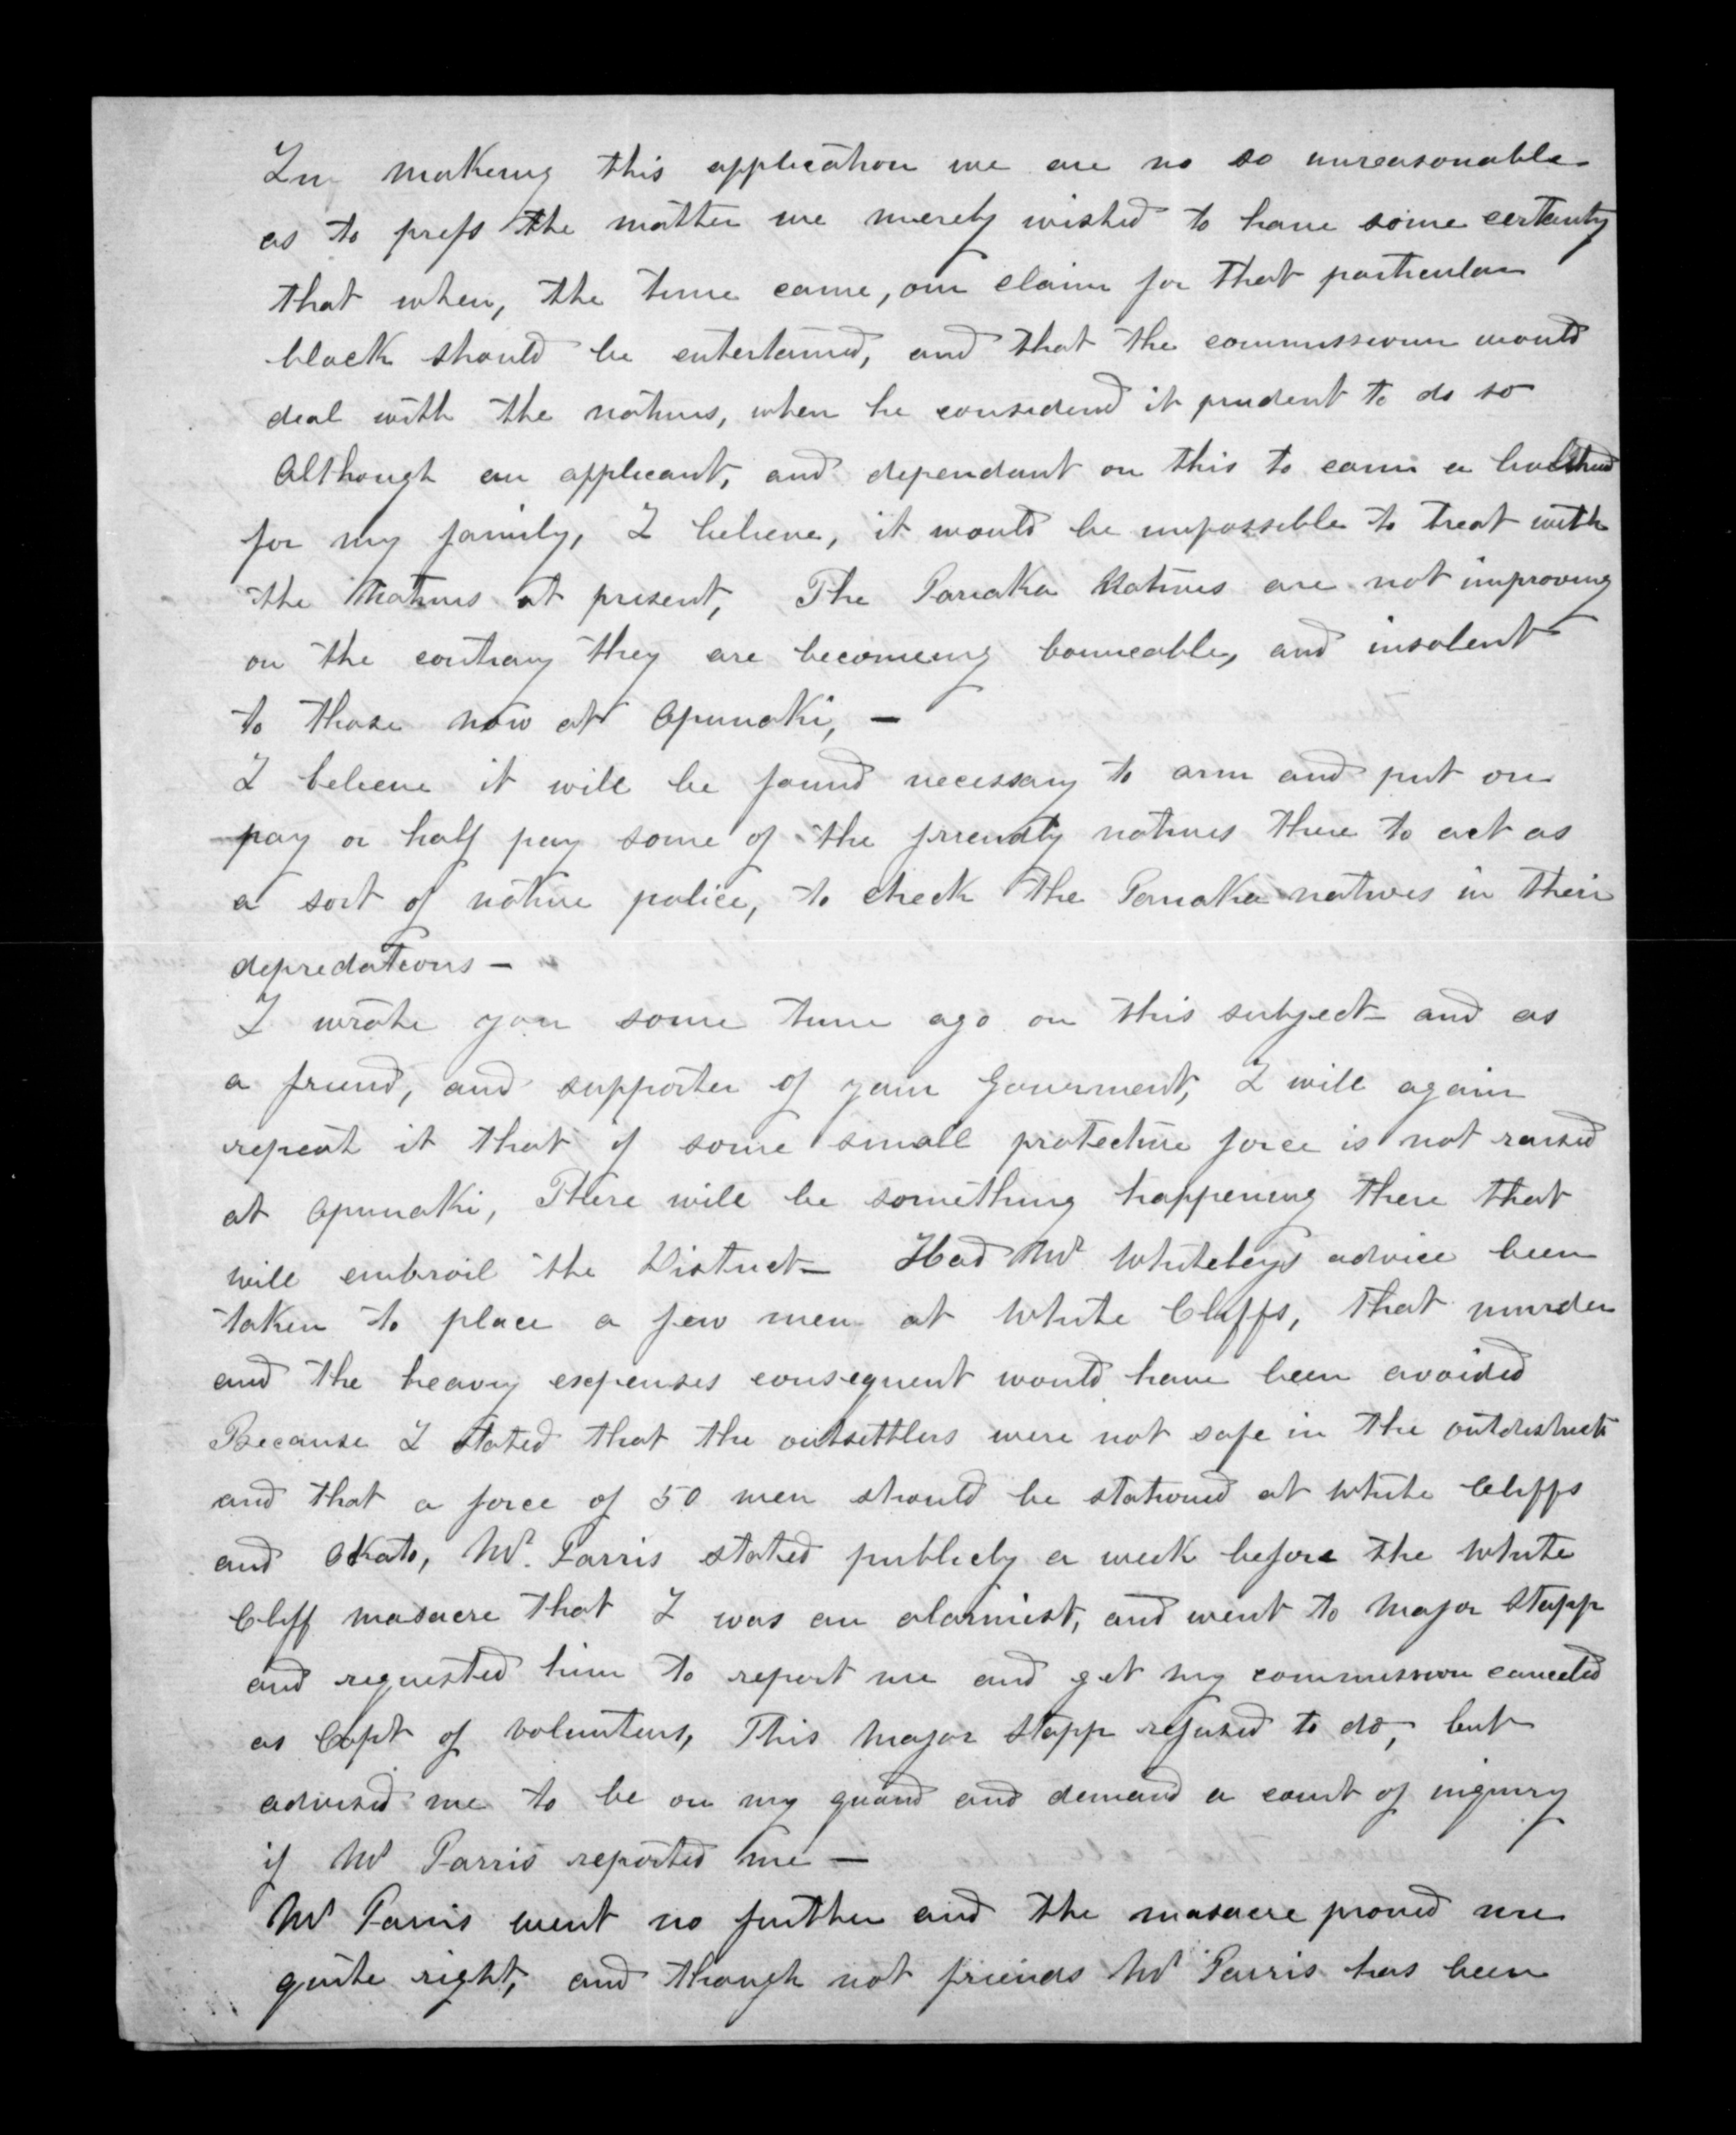 In making this application we are no so unreasonable
as to press the matter we merely wished to have some certainty
that when, the time came, our claim for that particular
block should be entertained, and that the commissioner would
deal with the natives, when he considered it prudent to do so
Although an applicant, and dependant on this to earn a
for my family, I believe, it would be impossible to treat with
the Natives at present, The Pariaka Natives are not improving
on the contrary they are becomeing and insolent
to those now at Opunaki, —
I believe it will be found necessary to arm and put on
pay or half pay some of the friendly natives there to act as
a sort of native police, to check the Pariaka natives in their
depredations —
I wrote you some time ago on this subject and as
a friend, and supporter of your Government, I will again
repeat it that if some small protective force is not raised
at Opunaki, There will be something happening there that
will embroil the District — Had Mr Whiteleys advice been
taken to place a few men at White Cliffs, that murder
and the heavy expenses consequent would have been avoided
Because I stated that the outsettlers were not safe in the outdistricts
and that a force of 50 men should be stationed at White Cliffs
and Okato, Mr. Parris stated publicly a week before the White
Cliff masacre that I was an alarmist, and went to Major Stapp
and requested him to report me and get my commission canceled
as Capt of Volunteers, This Major Stapp refused to do, but
advised me to be on my guard and demand a court of inquiry
if Mr Parris reported me —
Mr Parris went no further and the masacre proved me
quite right, and though not friends Mr Parris has been